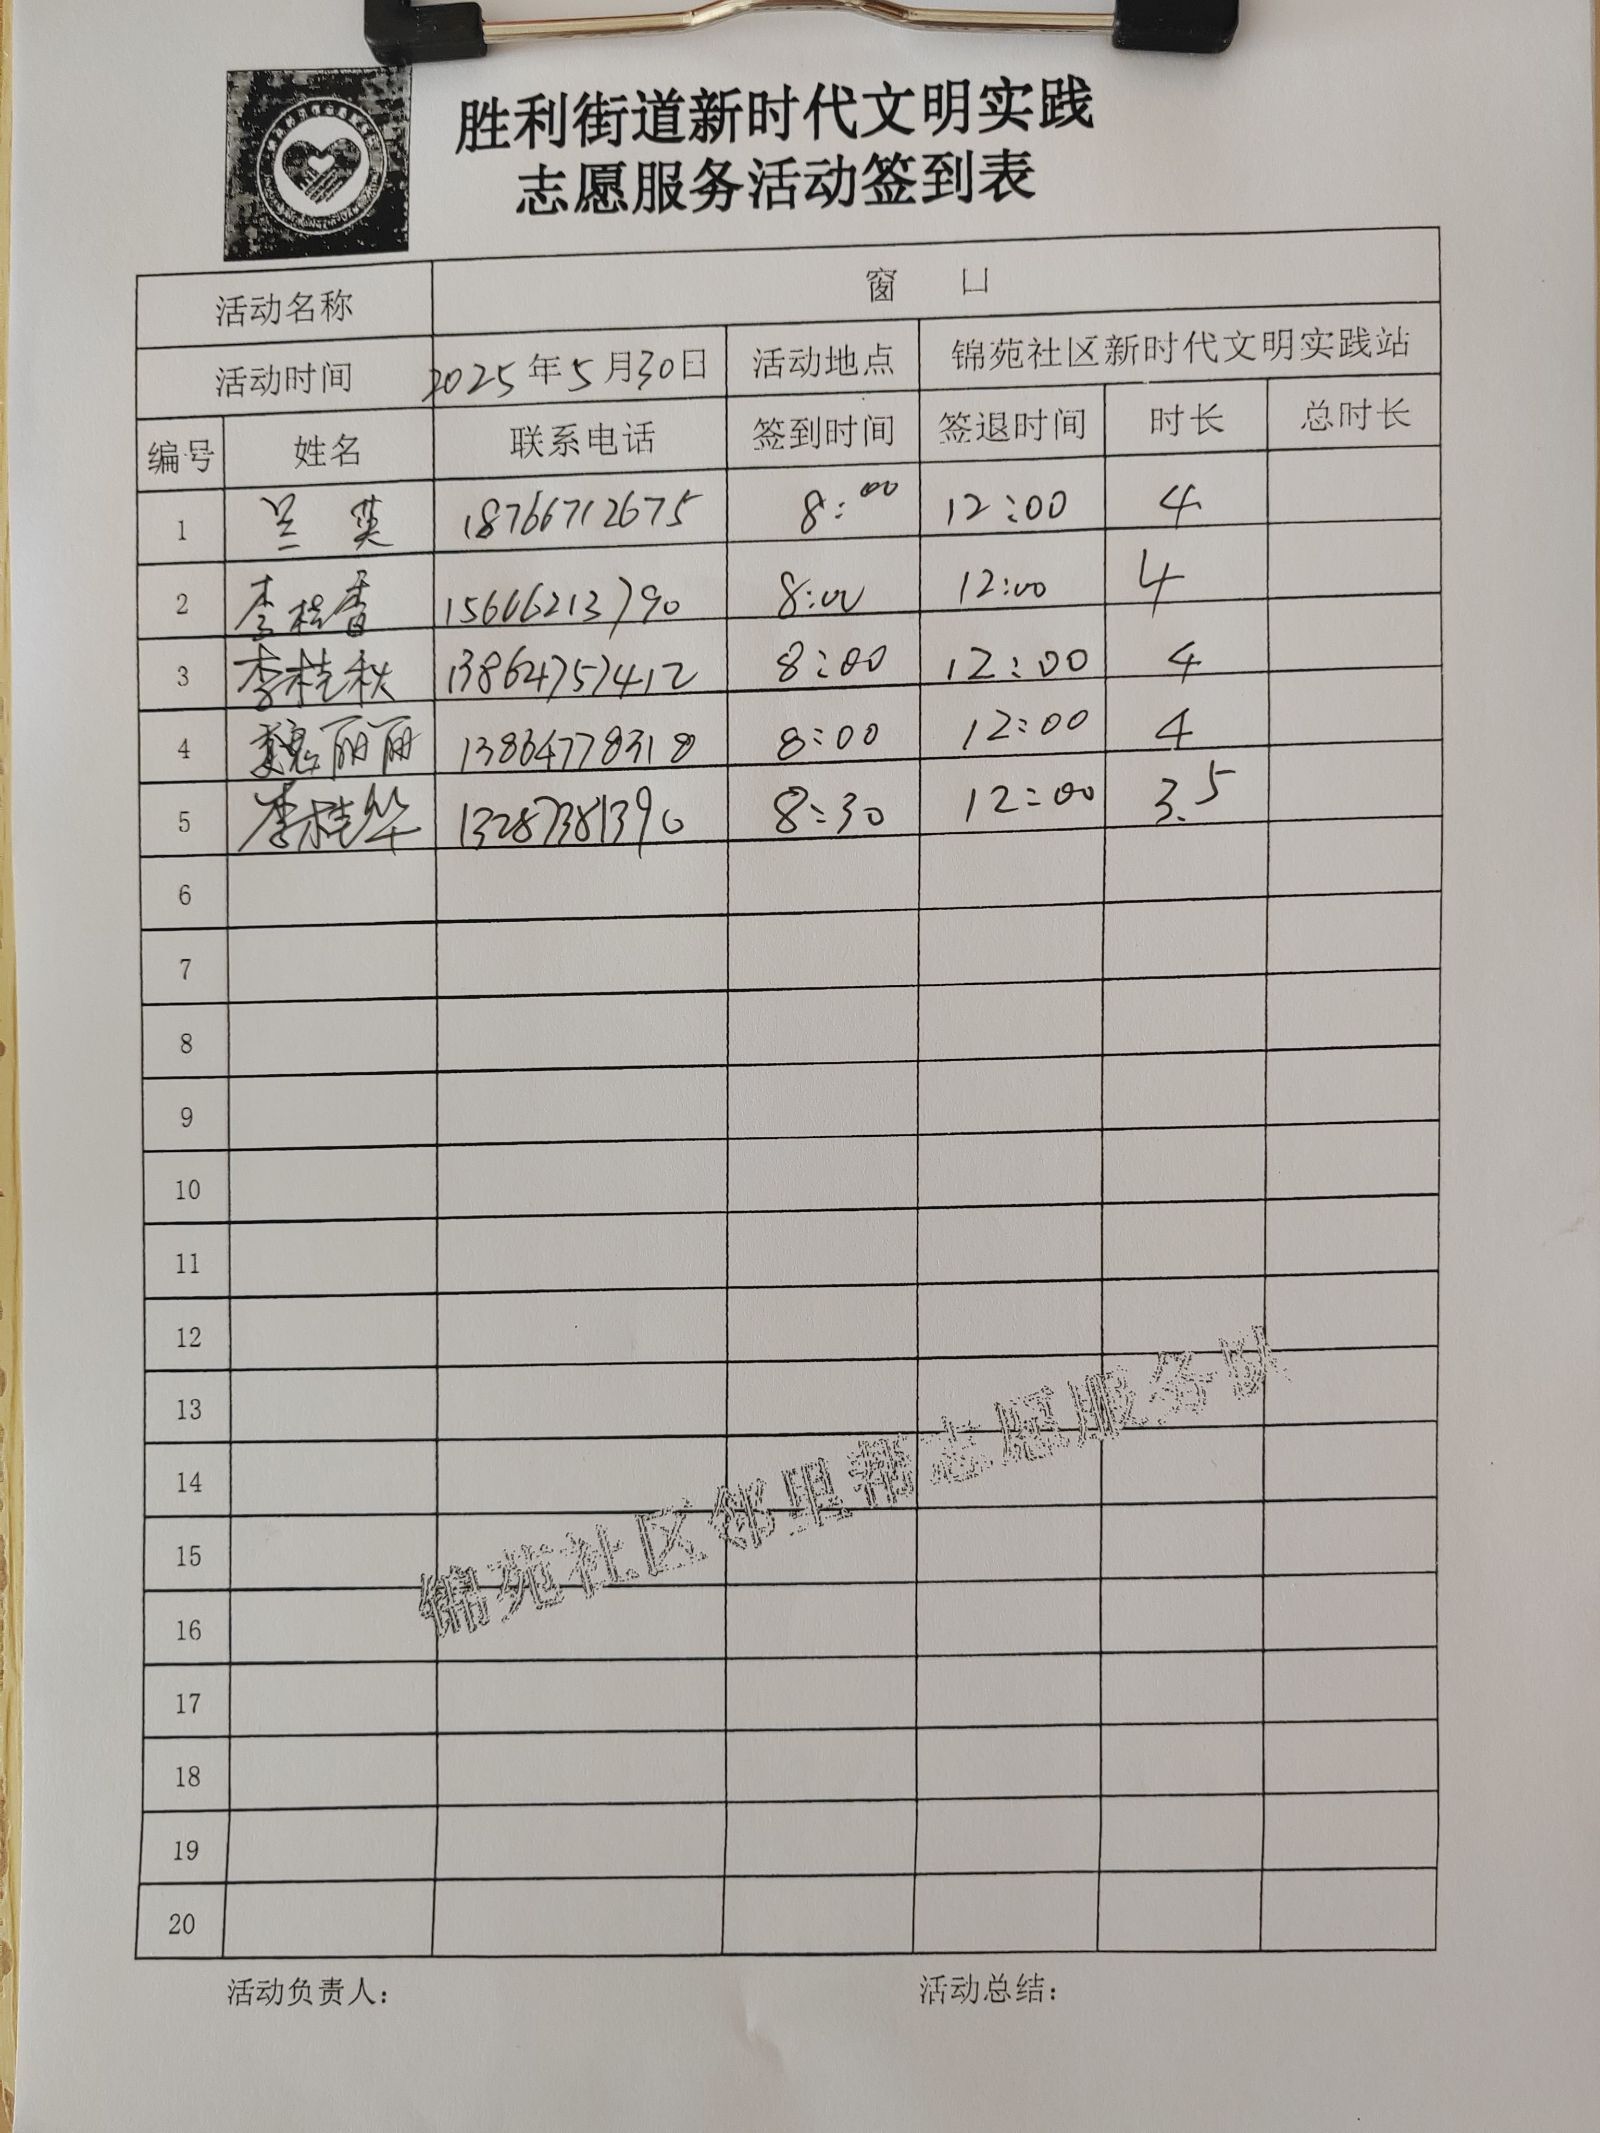 胜利街道新时代文明实践
志愿服务活动签到表
活动名称 窗 口
活动时间 2025年5月30日 活动地点 锦苑社区新时代文明实践站
编号 姓名 联系电话 签到时间 签退时间 时长 总时长
1 兰英 18766712675 8:00 12:00 4
2 李桂香 15606213790 8:00 12:00 4
3 李桂秋 13864757412 8:00 12:00 4
4 魏丽丽 13864778318 8:00 12:00 4
5 李桂华 13287381390 8:30 12:00 3.5
6
7
8
9
10
11
12
13
14
15
16
17
18
19
20
锦苑社区邻里帮志愿服务队
活动负责人: 活动总结: